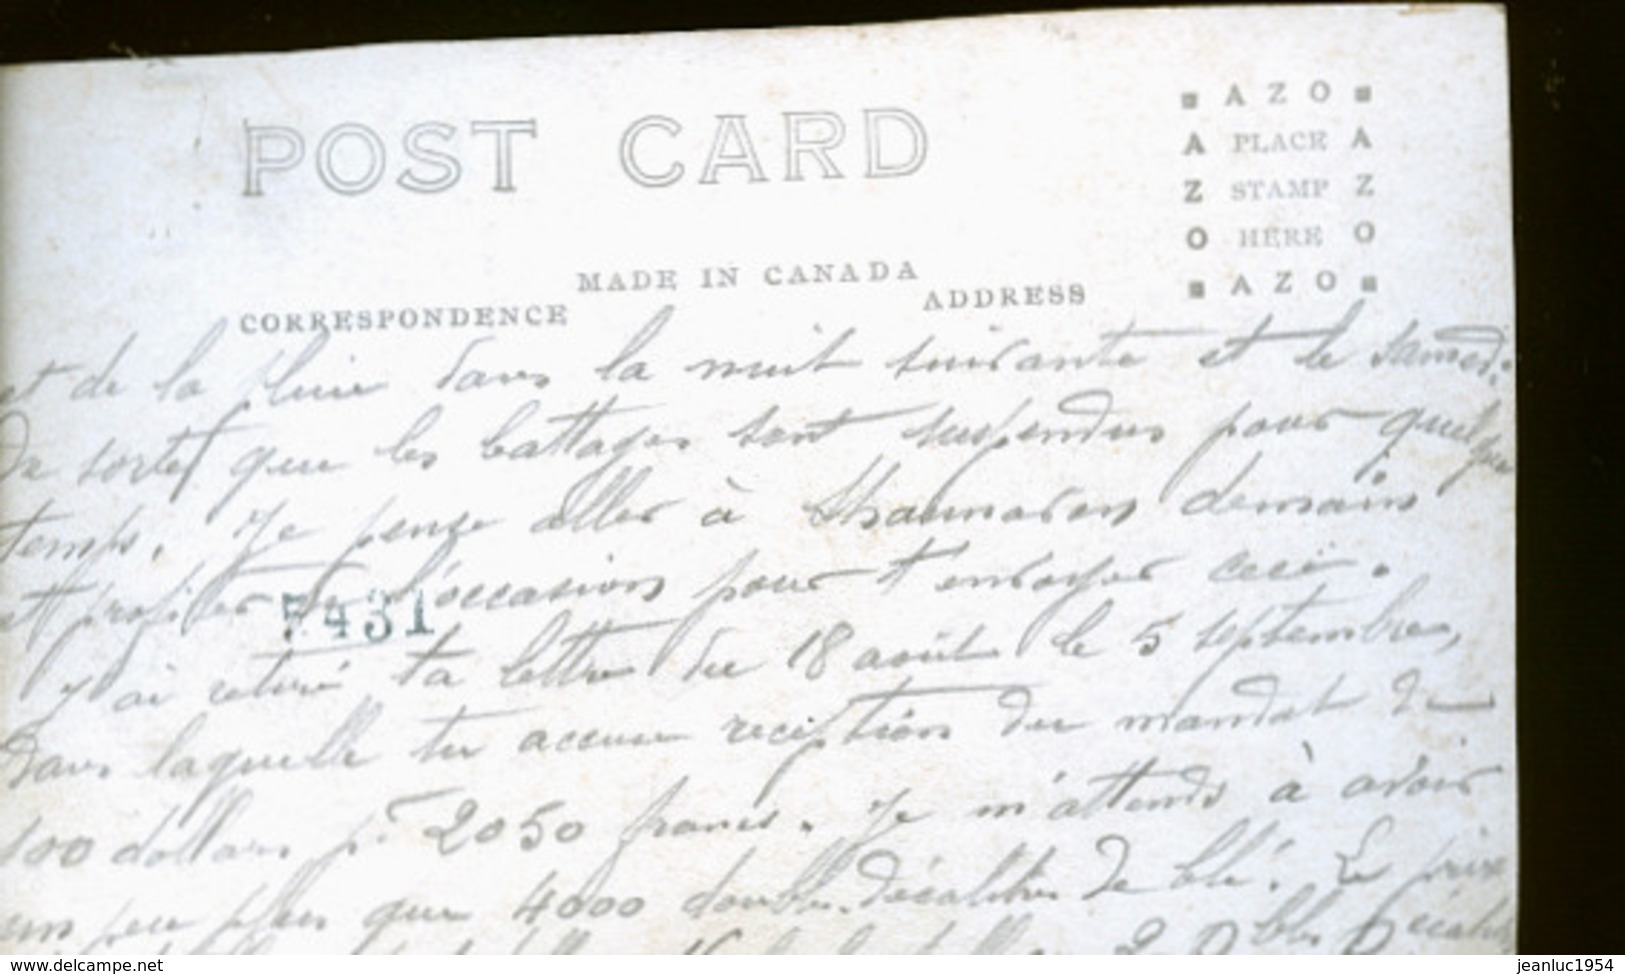 POST CARD
AZO
A PLACE A
Z STAMP Z
O HERE O
AZO
MADE IN CANADA
CORRESPONDENCE
ADDRESS
et de la pluie dans la nuit suivante et le samedi.
De sorte que les battages sont suspendus pour quelque
temps. Je pense aller à Shaunavon demain
et profiter de l'occasion pour t'envoyer ceci.
7431
J'ai retiré ta lettre du 18 août le 5 septembre,
dans laquelle tu accuse reception du mandat de
100 dollars pr 2050 francs. Je m'attends à avoir
un peu plus que 4000 doubles décalitres de blé. Le prix
www.delcampe.net
jeanluc1954